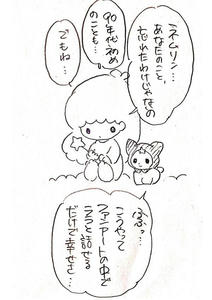 ネムリン…
あなたのこと、
忘れたわけじゃなの
90年代初め
のことも…
でもね…
(念)…
こうやって
ファンアートの中で
ララと話せる
だけで幸せさ…